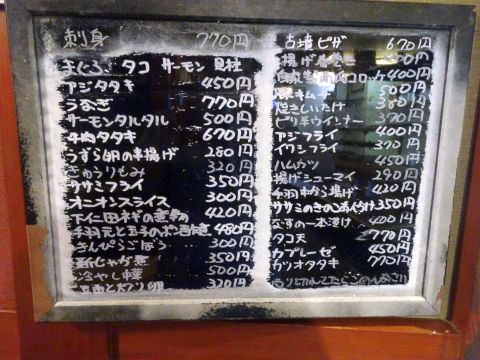 刺身 770円
まぐろ タコ サーモン 貝柱
アジタタキ 450円
うなぎ 770円
サーモンタルタル 500円
牛肉タタキ 670円
うずら卵の串揚げ 280円
きゅうりもみ 320円
ササミフライ 350円
オニオンスライス 300円
下仁田ネギの煮物 420円
手羽元と玉子のポン酢煮 480円
きんぴらごぼう 300円
新じゃが煮 350円
冷やし 500円
320円
古墳ピザ 670円
揚げ春巻き
コロッケ 400円
キムチ 500円
焼きしいたけ 380円
ピリ辛ウインナー 370円
アジフライ 400円
イワシフライ 370円
ハムカツ 450円
揚げシューマイ 290円
手羽中から揚げ 420円
ササミのきのこあんかけ 350円
なすの一本漬け 400円
タコ天 770円
カプレーゼ 450円
カツオタタキ 770円
売り切れてたらごめんなさい